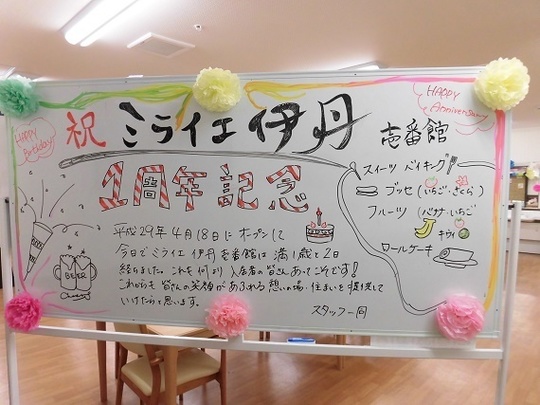 HAPPY
Birthday
祝 ミライエ 伊丹 壱番館
HAPPY
Anniversary
1周年記念
スイーツ バイキング
ブッセ (いちご・さくら)
フルーツ (バナナ・いちご
キウイ
ロールケーキ
平成29年4月18日にオープンして
今日でミライエ伊丹壱番館は満1歳と2日
経ちました。これも何より入居者の皆さんあってこそです!
これからも皆さんの笑顔があふれる憩いの場・住まいを提供して
いけたらと思います。
スタッフ一同
BEER
BEER
Cheers